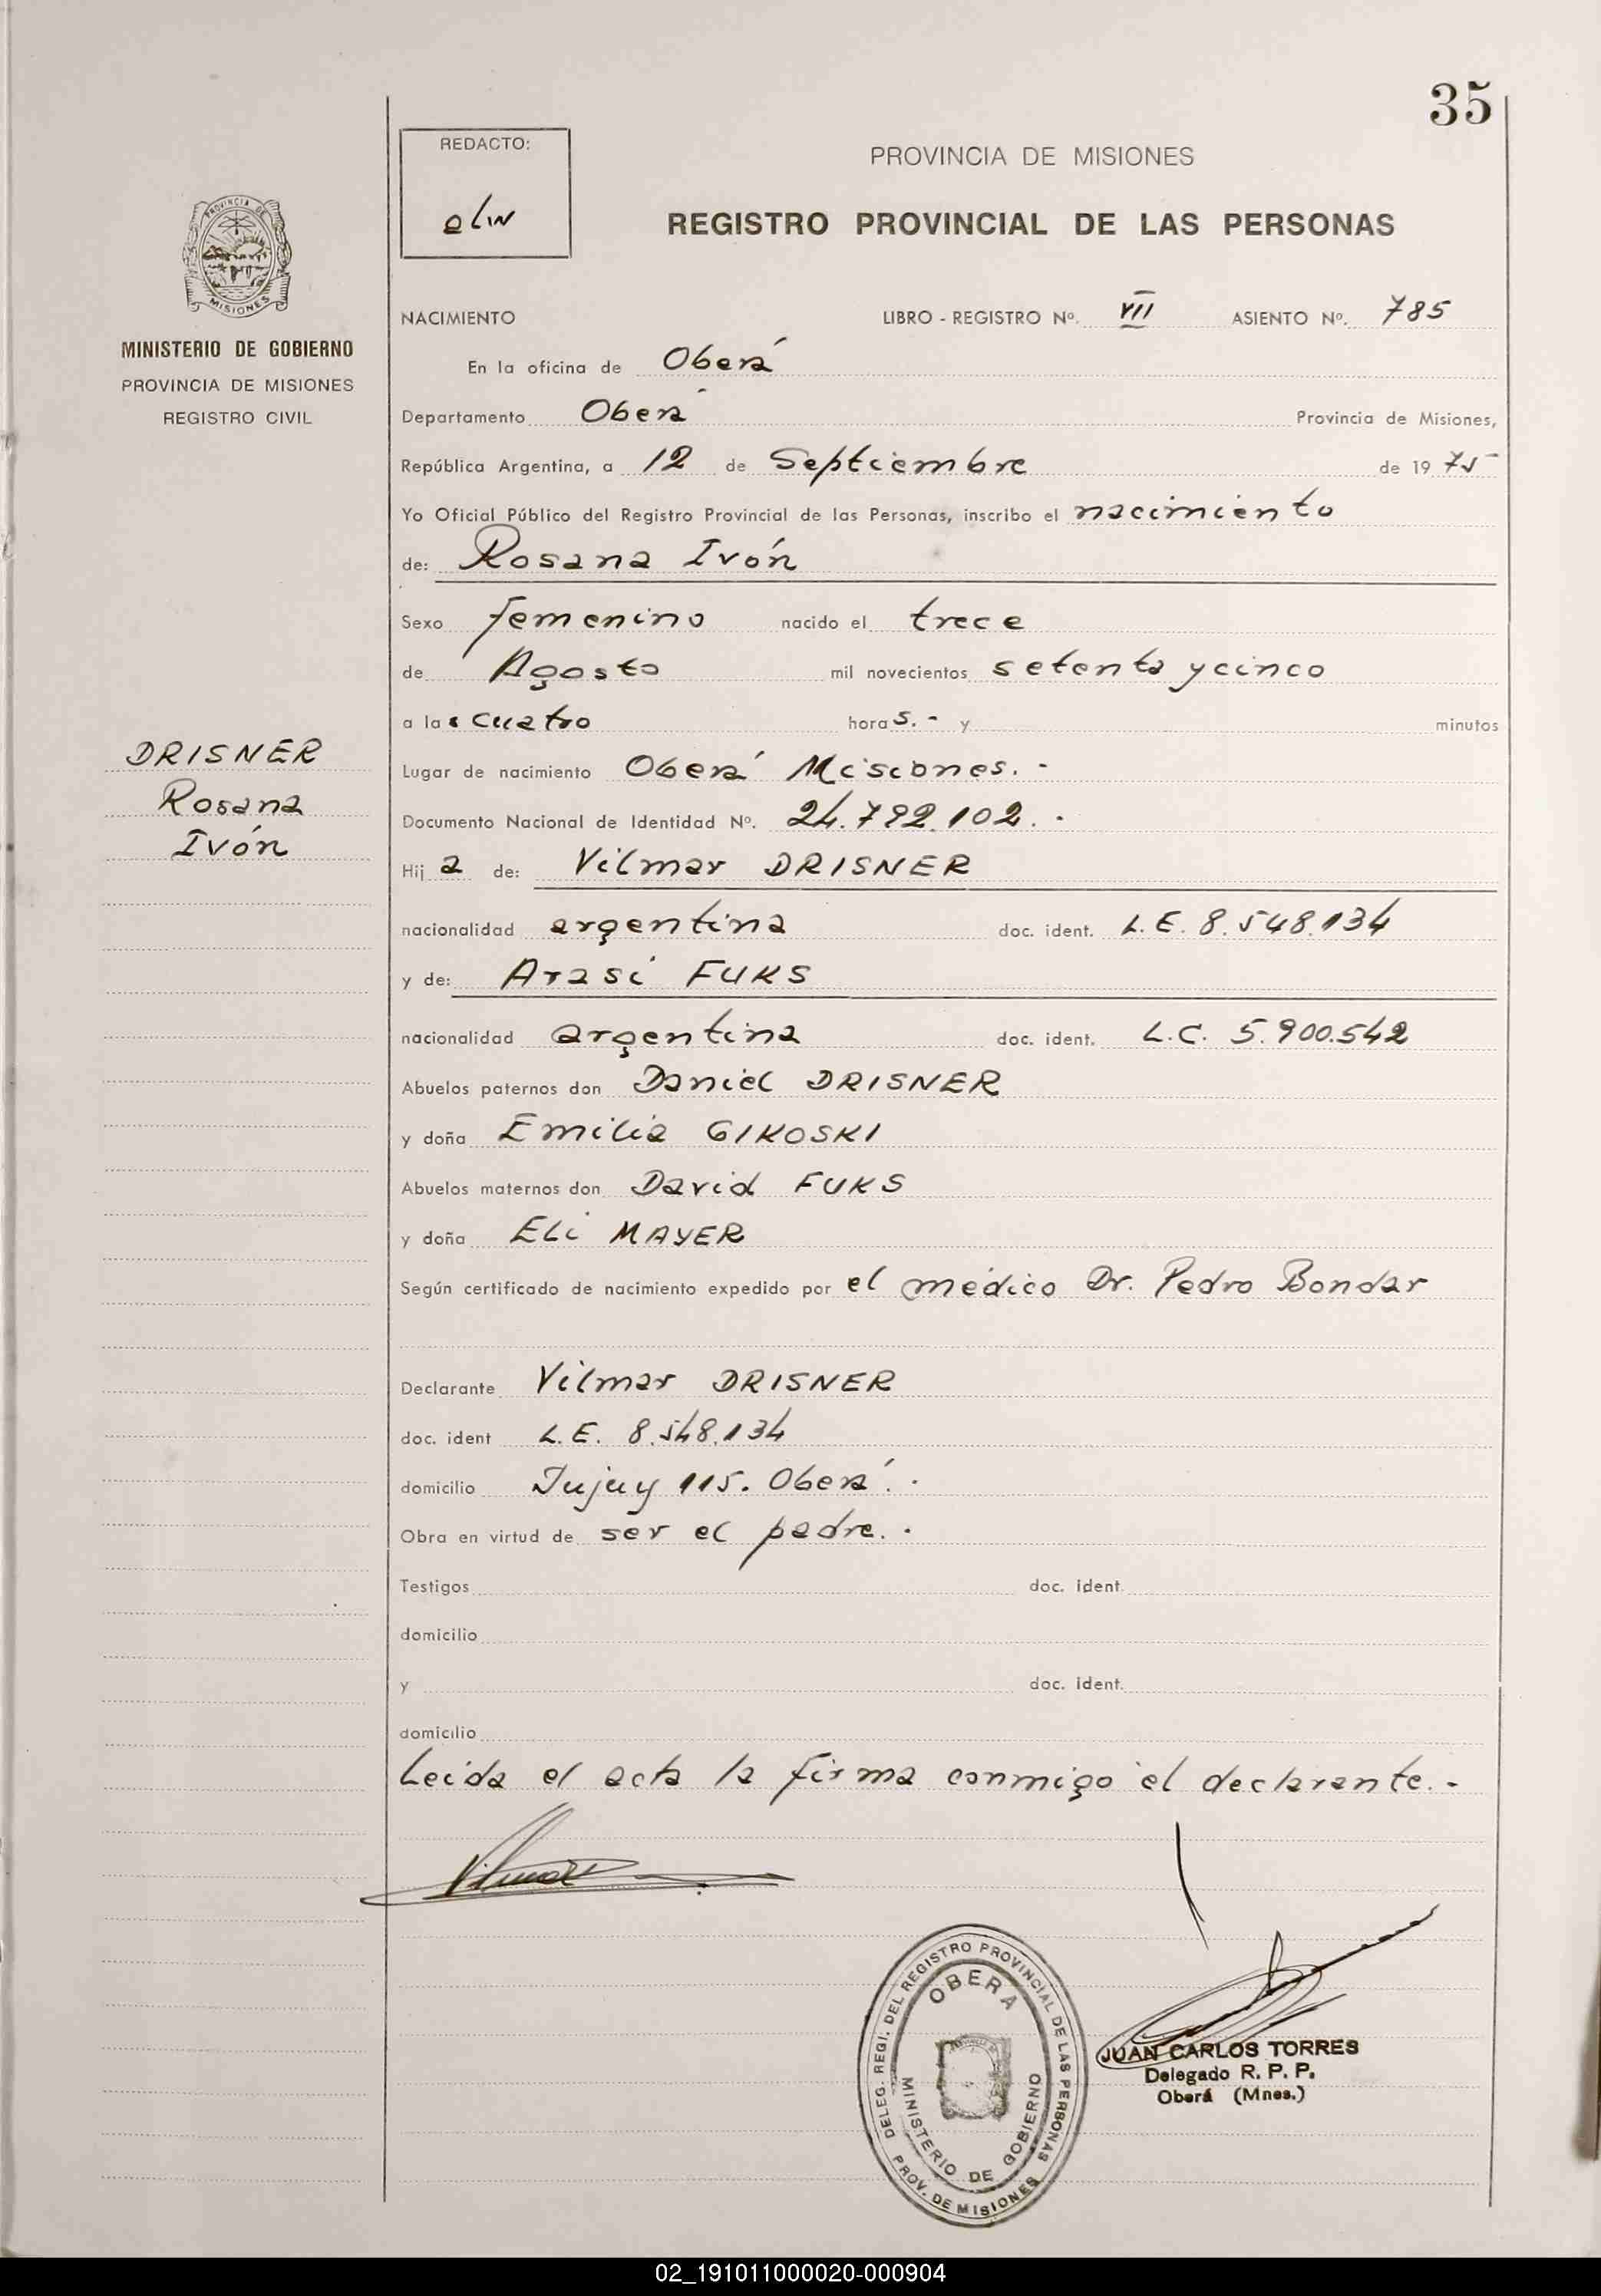 35
REDACTO:
PROVINCIA DE MISIONES
REGISTRO PROVINCIAL DE LAS PERSONAS
PROVINCIA DE
MISIONES
MINISTERIO DE GOBIERNO
PROVINCIA DE MISIONES
REGISTRO CIVIL
NACIMIENTO LIBRO - REGISTRO Nº. VII ASIENTO Nº. 785
En la oficina de Oberá
Departamento Oberá Provincia de Misiones,
República Argentina, a 12 de Septiembre de 19 75
Yo Oficial Público del Registro Provincial de las Personas, inscribo el nacimiento
de: Rosana Ivón
Sexo femenino nacido el trece
de Agosto mil novecientos setenta y cinco
a las cuatro horas.- y minutos
DRISNER
Rosana
Ivón
Lugar de nacimiento Oberá Misiones.-
Documento Nacional de Identidad Nº. 24.792.102.-
Hija de: Vilmar DRISNER
nacionalidad argentina doc. ident. L.E. 8.548.134
y de: Arasi FUKS
nacionalidad argentina doc. ident. L.C. 5.900.542
Abuelos paternos don Daniel DRISNER
y doña Emilia GIKOSKI
Abuelos maternos don David FUKS
y doña Eli MAYER
Según certificado de nacimiento expedido por el médico Dr. Pedro Bondar
Declarante Vilmar DRISNER
doc. ident L.E. 8.548.134
domicilio Jujuy 115. Oberá.-
Obra en virtud de ser el padre.-
Testigos doc. ident.
domicilio
y doc. ident.
domicilio
Leida el acta la firma conmigo el declarante.-
DELEG. REGI. DEL REGISTRO PROVINCIAL DE LAS PERSONAS
OBERA
MINISTERIO DE GOBIERNO
PROV. DE MISIONES
JUAN CARLOS TORRES
Delegado R. P. P.
Oberá (Mnes.)
02_191011000020-000904